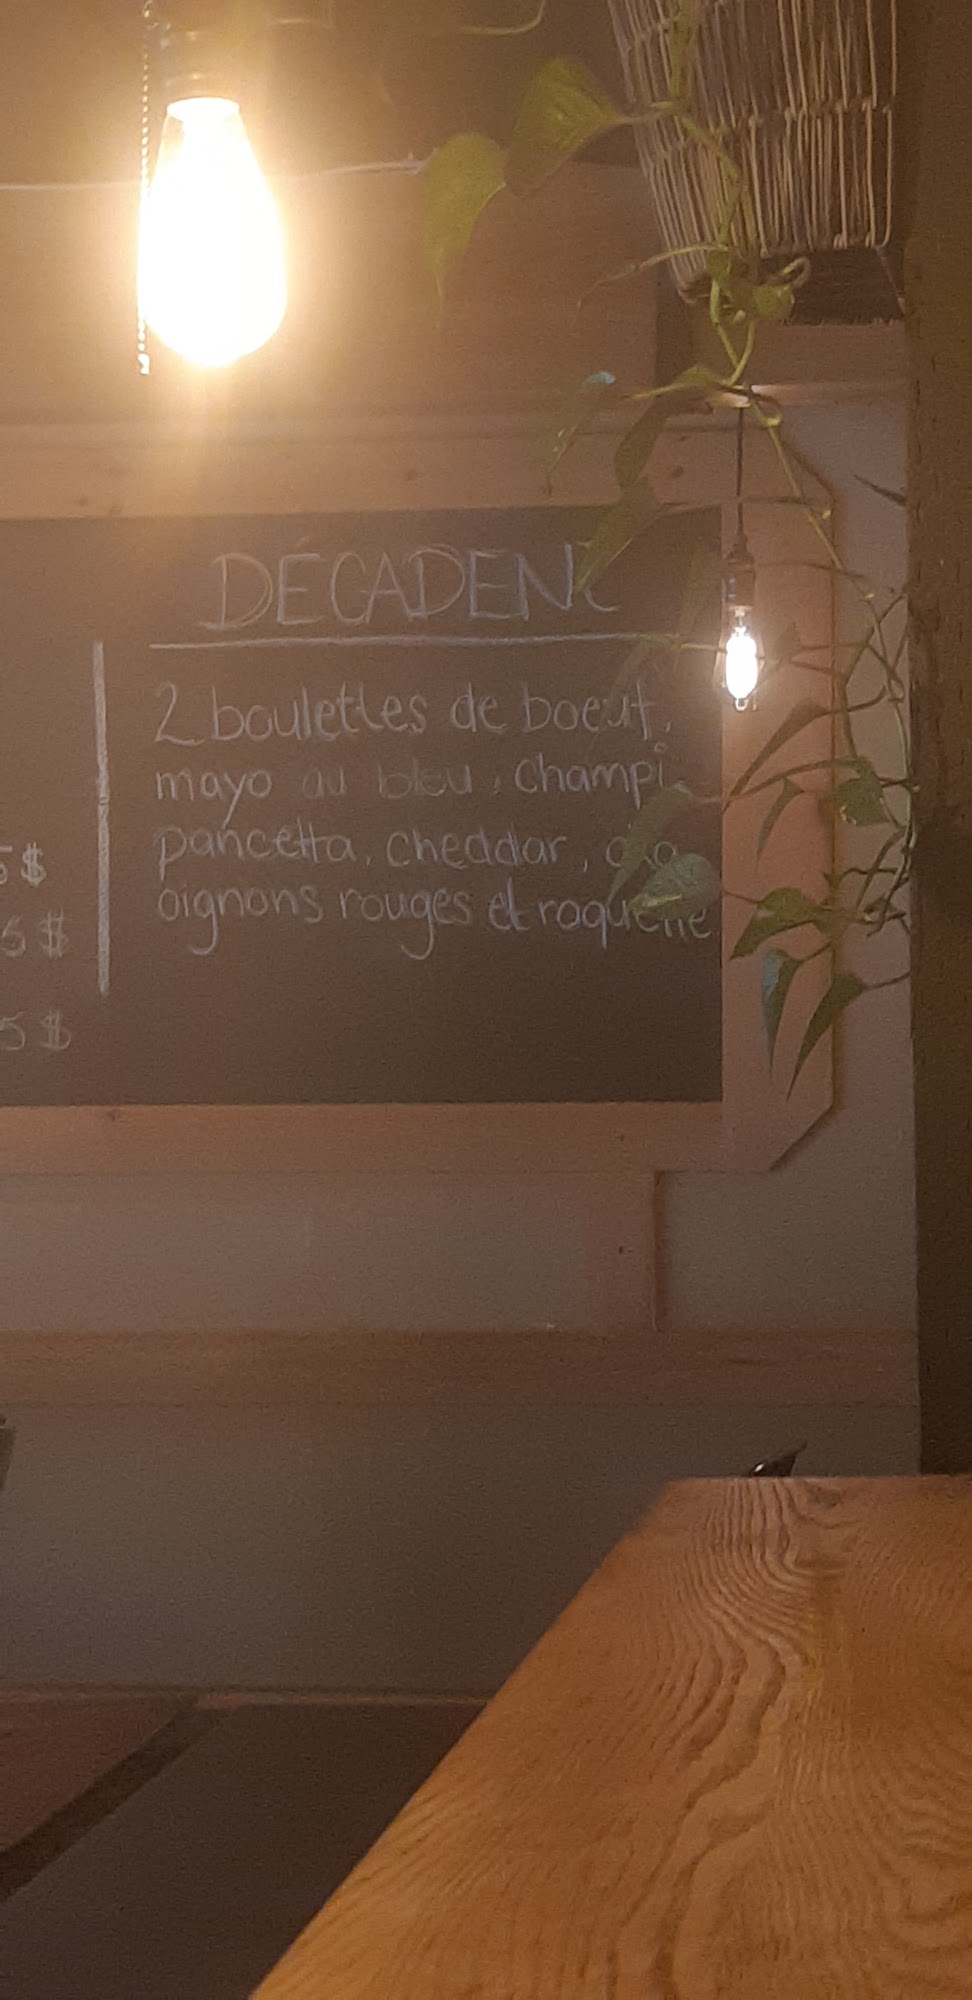 DÉCADENC
2 boulettes de boeuf,
mayo au bleu, champi
pancetta, cheddar,
oignons rouges et roquette
5 $
5 $
5 $